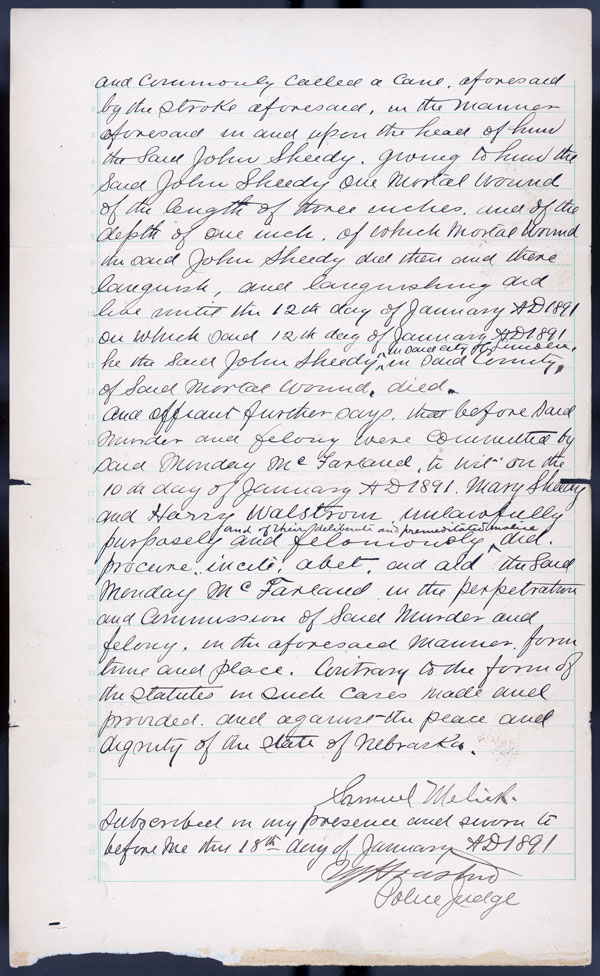 and Commonly Called a Cane, aforesaid
by the stroke aforesaid, in the manner
aforesaid in and upon the head of him
the Said John Sheedy. giving to him the
Said John Sheedy One Mortal Wound
of the length of three inches. and of the
depth of one inch. of which Mortal Wound
the said John Sheedy did then and there
languish, and languishing did
live until the 12th day of January AD 1891
on which said 12th day of January AD 1891
in Said City of Lincoln,
he the Said John Sheedy, in Said County,
of Said Mortal Wound, died.
And affiant further says, that before said
Murder and felony were Committed by
said Monday McFarland, to wit on the
10th day of January AD 1891. Mary Sheedy
and Harry Walstrom unlawfully
and of their deliberate and premeditated malice
purposely and feloniously did.
procure, incite, abet, and aid the Said
Monday McFarland in the perpetration
and Commission of Said Murder and
felony, in the aforesaid manner, form
time and place. Contrary to the form of
the statutes in such cases made and
provided. and against the peace and
dignity of the state of Nebraska.
Samuel Melick.
Subscribed in my presence and sworn to
before me this 18th day of January AD 1891
Houston
Police Judge